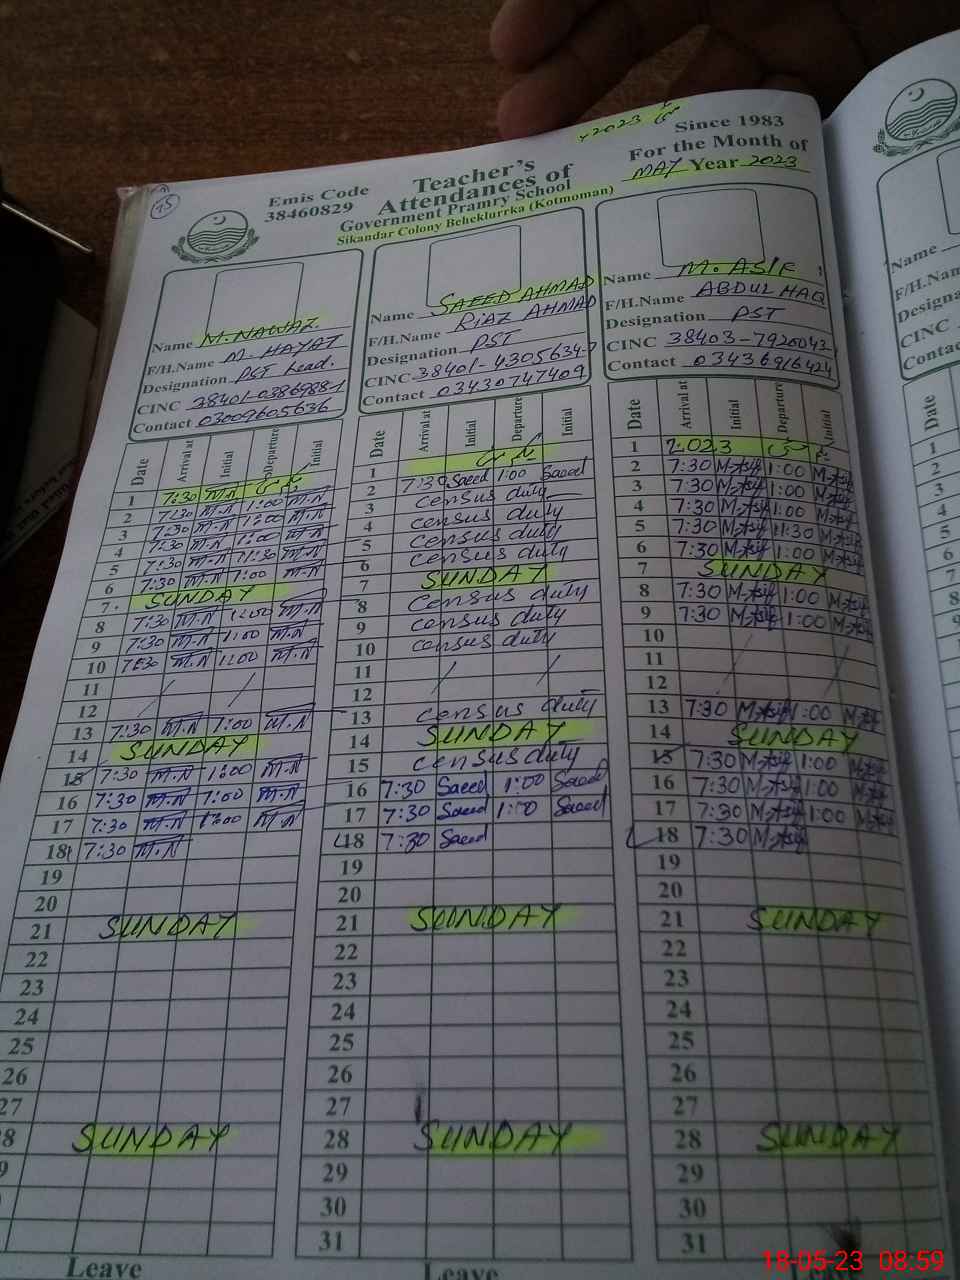 15
Emis Code
38460829
Teacher's
Attendances of
Government Pramry School
Sikandar Colony Beheklurrka (Kotmoman)
2023 مئی
Since 1983
For the Month of
MAY Year 2023
Name M. NAWAZ.
F/H.Name M. HAYAT
Designation PST Lead.
CINC 38401-0386988-1
Contact 03009605636
Date Arrival at Initial Departure Initial
1 یکم مئی
2 7:30 M.N 1:00 M.N
3 7:30 M.N 1:00 M.N
4 7:30 M.N 1:00 M.N
5 7:30 M.N 11:30 M.N
6 7:30 M.N 1:00 M.N
7 SUNDAY
8 7:30 M.N 1:00 M.N
9 7:30 M.N 1:00 M.N
10 7:30 M.N 1:00 M.N
11
12
13 7:30 M.N 1:00 M.N
14 SUNDAY
15 7:30 M.N 1:00 M.N
16 7:30 M.N 1:00 M.N
17 7:30 M.N 1:00 M.N
18 7:30 M.N
19
20
21 SUNDAY
22
23
24
25
26
27
8 SUNDAY
9
Leave
Name SAEED AHMAD
F/H.Name RIAZ AHMAD
Designation PST
CINC 38401-4305634-7
Contact 03430747409
Date Arrival at Initial Departure Initial
1 یکم مئی
2 7:30 Saeed 1:00 Saeed
3 census duty
4 census duty
5 census duty
6 census duty
7 SUNDAY
8 census duty
9 census duty
10 census duty
11
12
13 census duty
14 SUNDAY
15 census duty
16 7:30 Saeed 1:00 Saeed
17 7:30 Saeed 1:00 Saeed
18 7:30 Saeed
19
20
21 SUNDAY
22
23
24
25
26
27
28 SUNDAY
29
30
31
Leave
Name M. ASIF
F/H.Name ABDUL HAQ
Designation PST
CINC 38403-7920043-1
Contact 03436916424
Date Arrival at Initial Departure Initial
1 2023 یکم مئی
2 7:30 M.Asif 1:00 M.Asif
3 7:30 M.Asif 1:00 M.Asif
4 7:30 M.Asif 1:00 M.Asif
5 7:30 M.Asif 11:30 M.Asif
6 7:30 M.Asif 1:00 M.Asif
7 SUNDAY
8 7:30 M.Asif 1:00 M.Asif
9 7:30 M.Asif 1:00 M.Asif
10
11
12
13 7:30 M.Asif 1:00 M.Asif
14 SUNDAY
15 7:30 M.Asif 1:00 M.Asif
16 7:30 M.Asif 1:00 M.Asif
17 7:30 M.Asif 1:00 M.Asif
18 7:30 M.Asif
19
20
21 SUNDAY
22
23
24
25
26
27
28 SUNDAY
29
30
31
Name
F/H.Name
Designa
CINC
Contac
Date
1
2
3
4
5
6
7
8
18-05-23 08:59